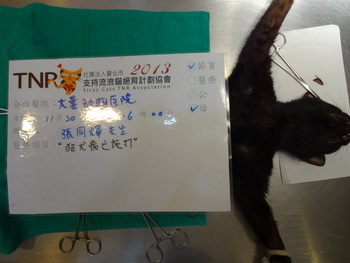 TNR 社團法人臺北市 2013
支持流浪貓絕育計劃協會
Stray Cats TNR Association
✓節育
醫療
公
✓母
合作醫院:大菫動物醫院
11月20
張同輝先生
"狂犬病已施打"